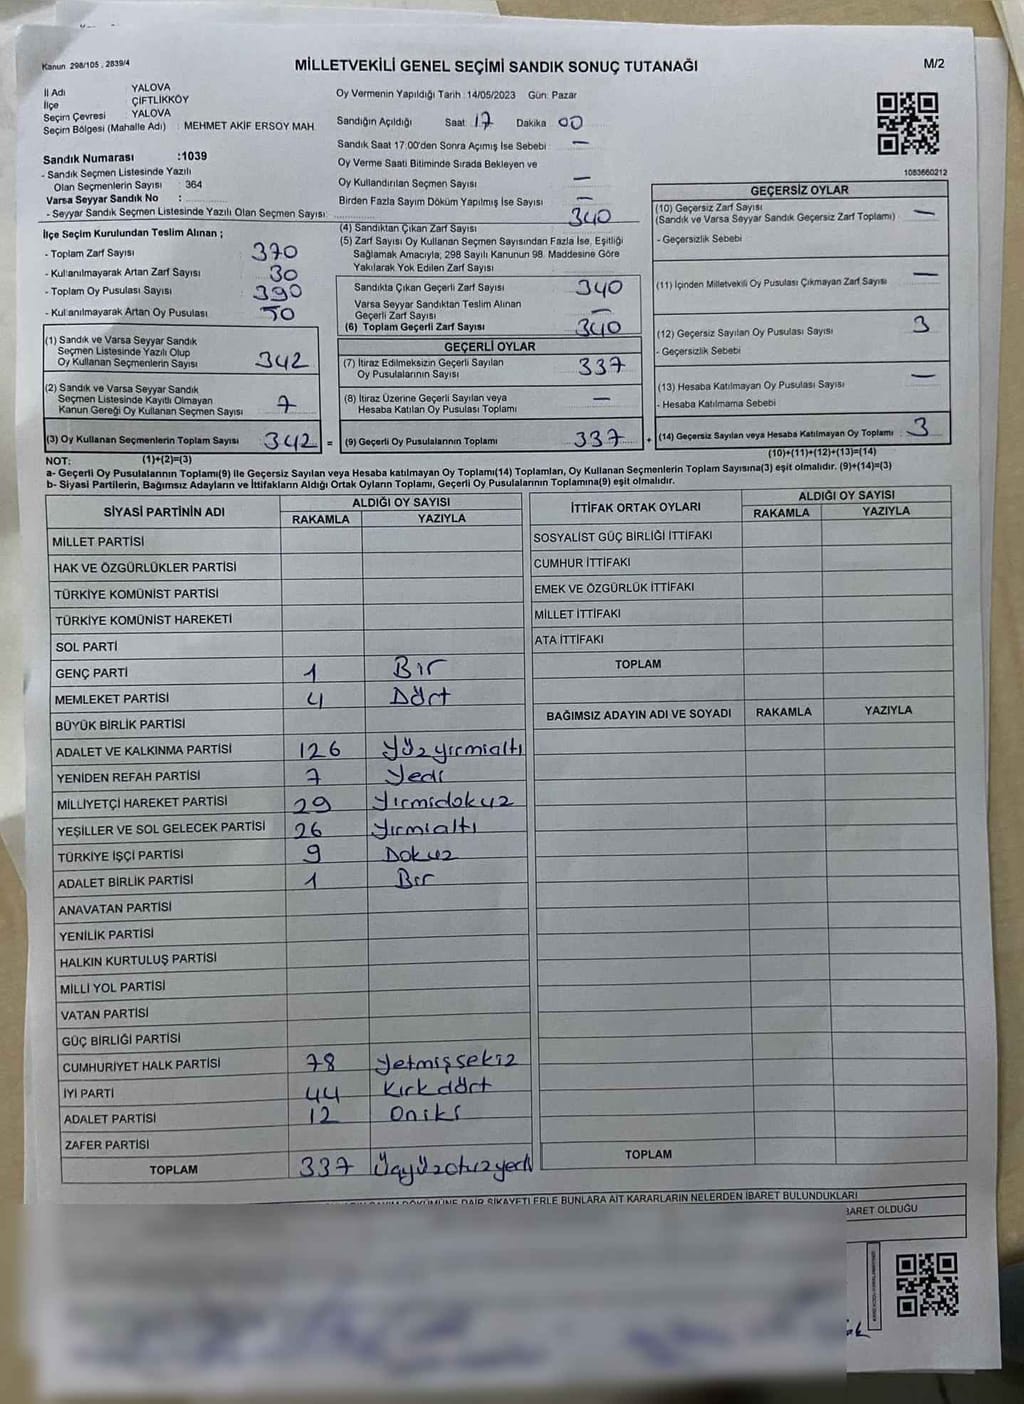 Kanun 298/105 , 2839/4
MİLLETVEKİLİ GENEL SEÇİMİ SANDIK SONUÇ TUTANAĞI
M/2
İl Adı : YALOVA
İlçe : ÇİFTLİKKÖY
Seçim Çevresi : YALOVA
Seçim Bölgesi (Mahalle Adı) : MEHMET AKİF ERSOY MAH
Sandık Numarası :1039
- Sandık Seçmen Listesinde Yazılı
Olan Seçmenlerin Sayısı : 364
Varsa Seyyar Sandık No :
- Seyyar Sandık Seçmen Listesinde Yazılı Olan Seçmen Sayısı:
Oy Vermenin Yapıldığı Tarih : 14/05/2023 Gün: Pazar
Sandığın Açıldığı Saat 17 Dakika 00
Sandık Saat 17:00'den Sonra Açımış İse Sebebi : —
Oy Verme Saati Bitiminde Sırada Bekleyen ve
Oy Kullandırılan Seçmen Sayısı —
Birden Fazla Sayım Döküm Yapılmış İse Sayısı —
1083660212
İlçe Seçim Kurulundan Teslim Alınan ;
- Toplam Zarf Sayısı 370
- Kullanılmayarak Artan Zarf Sayısı 30
- Toplam Oy Pusulası Sayısı 390
- Kullanılmayarak Artan Oy Pusulası 50
(1) Sandık ve Varsa Seyyar Sandık
Seçmen Listesinde Yazılı Olup
Oy Kullanan Seçmenlerin Sayısı 342
(2) Sandık ve Varsa Seyyar Sandık
Seçmen Listesinde Kayıtlı Olmayan
Kanun Gereği Oy Kullanan Seçmen Sayısı 7
(3) Oy Kullanan Seçmenlerin Toplam Sayısı 342 =
(4) Sandıktan Çıkan Zarf Sayısı 340
(5) Zarf Sayısı Oy Kullanan Seçmen Sayısından Fazla İse, Eşitliği
Sağlamak Amacıyla, 298 Sayılı Kanunun 98. Maddesine Göre
Yakılarak Yok Edilen Zarf Sayısı
Sandıkta Çıkan Geçerli Zarf Sayısı 340
Varsa Seyyar Sandıktan Teslim Alınan
Geçerli Zarf Sayısı —
(6) Toplam Geçerli Zarf Sayısı 340
GEÇERLİ OYLAR
(7) İtiraz Edilmeksizin Geçerli Sayılan
Oy Pusulalarının Sayısı 337
(8) İtiraz Üzerine Geçerli Sayılan veya
Hesaba Katılan Oy Pusulası Toplamı —
(9) Geçerli Oy Pusulalarının Toplamı 337 +
GEÇERSİZ OYLAR
(10) Geçersiz Zarf Sayısı —
(Sandık ve Varsa Seyyar Sandık Geçersiz Zarf Toplamı)
- Geçersizlik Sebebi
(11) İçinden Milletvekili Oy Pusulası Çıkmayan Zarf Sayısı —
(12) Geçersiz Sayılan Oy Pusulası Sayısı 3
- Geçersizlik Sebebi
(13) Hesaba Katılmayan Oy Pusulası Sayısı —
- Hesaba Katılmama Sebebi
(14) Geçersiz Sayılan veya Hesaba Katılmayan Oy Toplamı 3
NOT: (1)+(2)=(3) (10)+(11)+(12)+(13)=(14)
a- Geçerli Oy Pusulalarının Toplamı(9) ile Geçersiz Sayılan veya Hesaba katılmayan Oy Toplamı(14) Toplamları, Oy Kullanan Seçmenlerin Toplam Sayısına(3) eşit olmalıdır. (9)+(14)=(3)
b- Siyasi Partilerin, Bağımsız Adayların ve İttifakların Aldığı Ortak Oyların Toplamı, Geçerli Oy Pusulalarının Toplamına(9) eşit olmalıdır.
SİYASİ PARTİNİN ADI ALDIĞI OY SAYISI
RAKAMLA YAZIYLA
MİLLET PARTİSİ
HAK VE ÖZGÜRLÜKLER PARTİSİ
TÜRKİYE KOMÜNİST PARTİSİ
TÜRKİYE KOMÜNİST HAREKETİ
SOL PARTİ
GENÇ PARTİ 1 Bir
MEMLEKET PARTİSİ 4 Dört
BÜYÜK BİRLİK PARTİSİ
ADALET VE KALKINMA PARTİSİ 126 Yüzyirmialtı
YENİDEN REFAH PARTİSİ 7 Yedi
MİLLİYETÇİ HAREKET PARTİSİ 29 Yirmidokuz
YEŞİLLER VE SOL GELECEK PARTİSİ 26 Yirmialtı
TÜRKİYE İŞÇİ PARTİSİ 9 Dokuz
ADALET BİRLİK PARTİSİ 1 Bir
ANAVATAN PARTİSİ
YENİLİK PARTİSİ
HALKIN KURTULUŞ PARTİSİ
MİLLİ YOL PARTİSİ
VATAN PARTİSİ
GÜÇ BİRLİĞİ PARTİSİ
CUMHURİYET HALK PARTİSİ 78 Yetmişsekiz
İYİ PARTİ 44 Kırkdört
ADALET PARTİSİ 12 Oniki
ZAFER PARTİSİ
TOPLAM 337 Üçyüzotuzyedi
İTTİFAK ORTAK OYLARI ALDIĞI OY SAYISI
RAKAMLA YAZIYLA
SOSYALİST GÜÇ BİRLİĞİ İTTİFAKI
CUMHUR İTTİFAKI
EMEK VE ÖZGÜRLÜK İTTİFAKI
MİLLET İTTİFAKI
ATA İTTİFAKI
TOPLAM
BAĞIMSIZ ADAYIN ADI VE SOYADI RAKAMLA YAZIYLA
TOPLAM
DÖKÜMÜNE DAİR ŞİKAYETLERLE BUNLARA AİT KARARLARIN NELERDEN İBARET BULUNDUKLARI
İBARET OLDUĞU